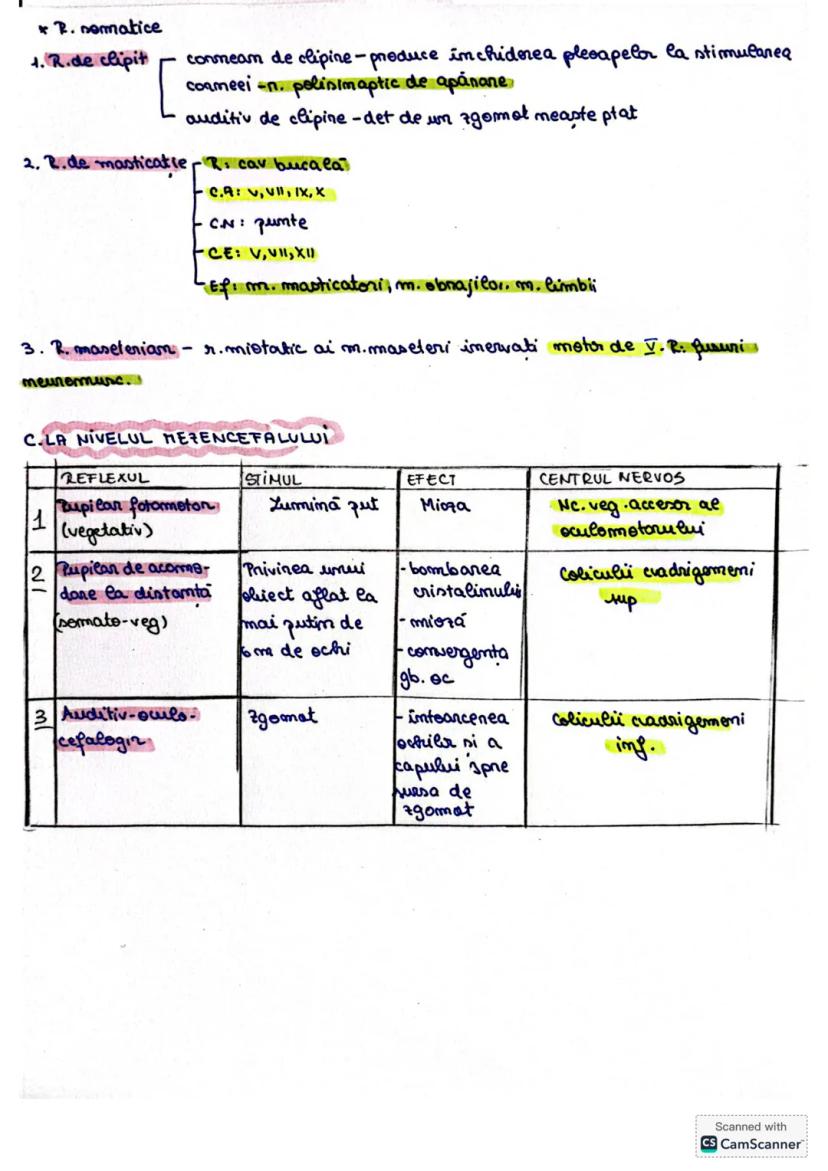 * R. somatice
1. R. de clipit
cornean de clipire - produce închiderea pleoapelor la stimularea
corneei - r. polisinaptic de apărare
auditiv de clipire - det de un zgomot neașteptat
2. R. de masticație
R: cav bucală
C.A: V, VII, IX, X
C.N: punte
C.E: V, VII, XII
Ef: m. masticatori, m. obrajilor, m. limbii
3. R. maseterian - r. miotatic ai m. maseteri inervați motor de V. R: fusuri
neuromusc.
C. LA NIVELUL MEZENCEFALULUI
REFLEXUL STIMUL EFECT CENTRUL NERVOS
1 Pupilar fotomotor Lumină put Mioza Nc. veg. accesor al
(vegetativ) oculomotorului
2 Pupilar de acomo- Privirea unui - bombarea Coliculii cvadrigemeni
dare la distanță obiect aflat la cristalinului sup
(somato-veg) mai puțin de - mioză
6 m de ochi - convergența
gb. oc
3 Auditiv-oculo- zgomot - întoarcerea Coliculii cvadrigemeni
cefalogir ochilor si a inf.
capului spre
sursa de
zgomot
Scanned with
CS CamScanner